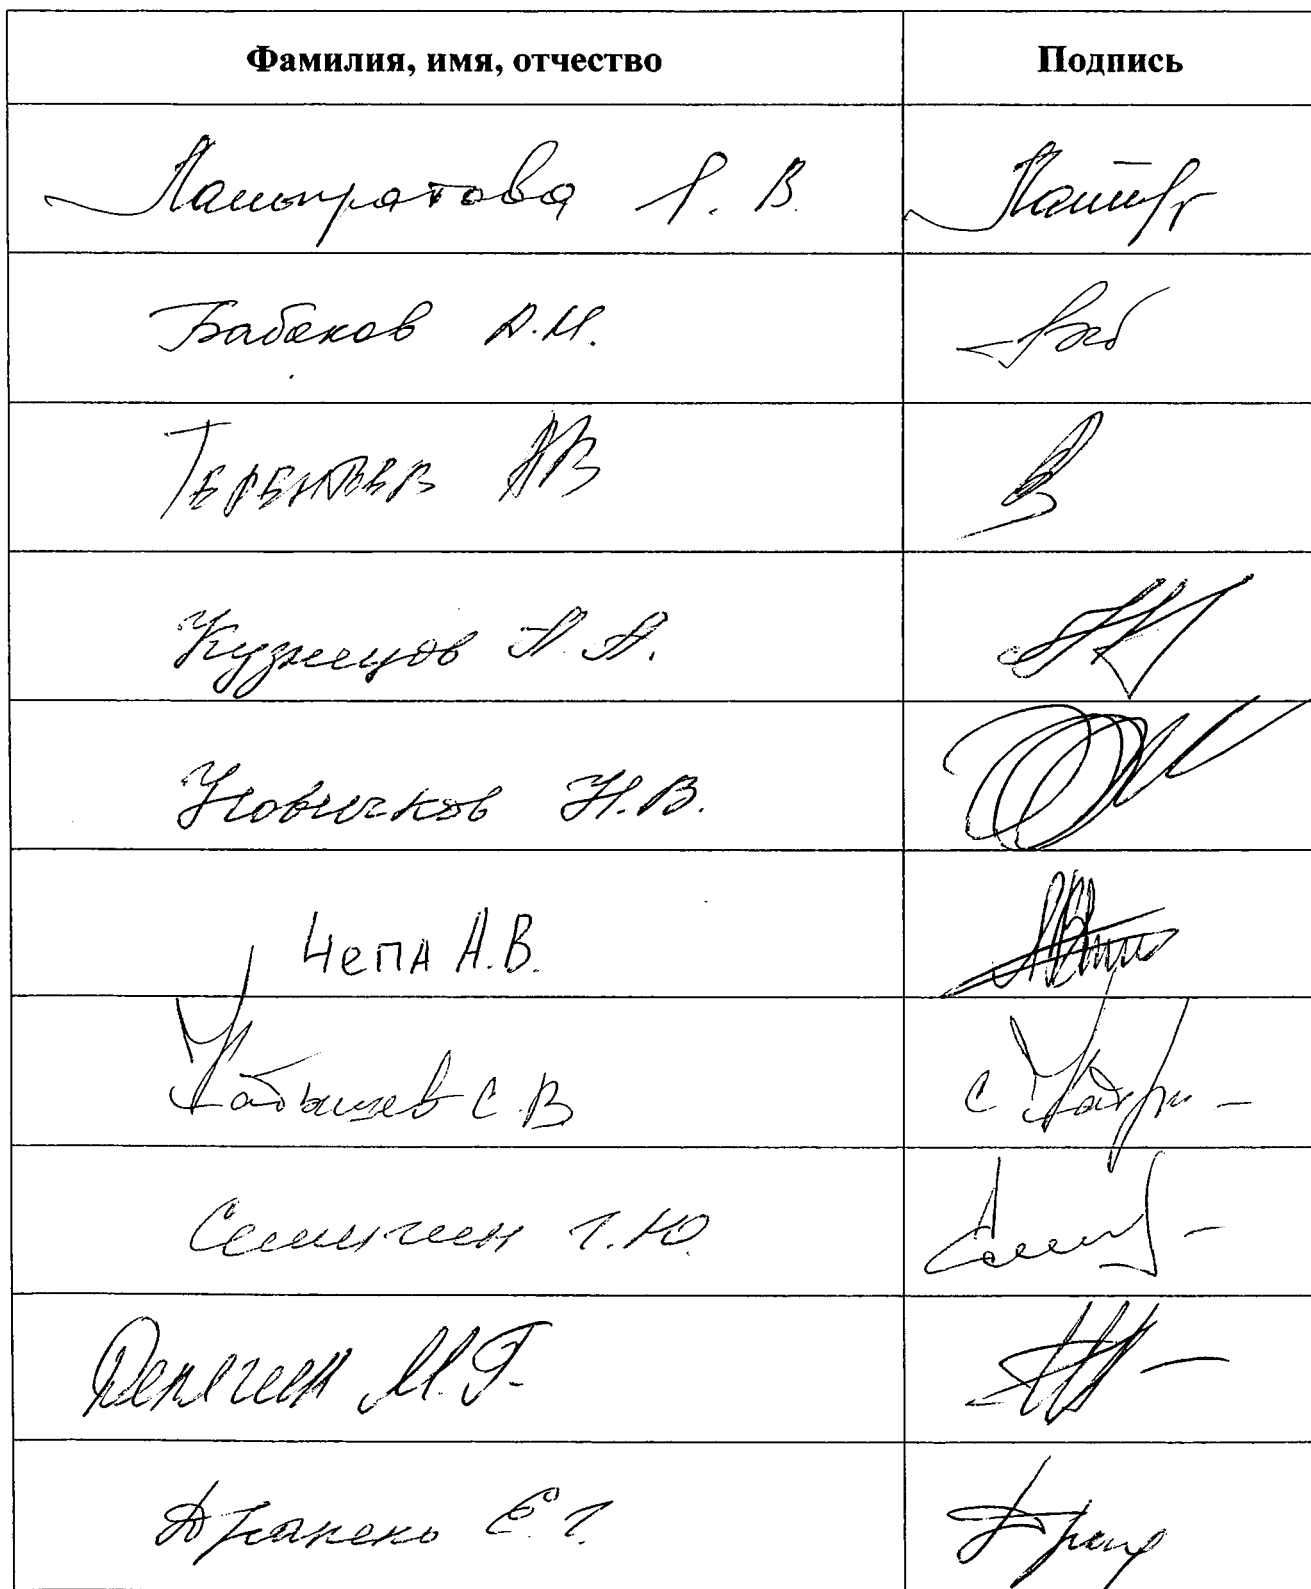 Фамилия, имя, отчество Подпись
Лантратова Я. В.
Бабаков А.М.
ТЕРЕНТЬЕВ АВ
Кузнецов А.А.
Новичков Н.В.
Чепа А.В.
Кабышев С В
Семигин Г.Ю.
Делягин М.Г.
Драпеко Е.Г.